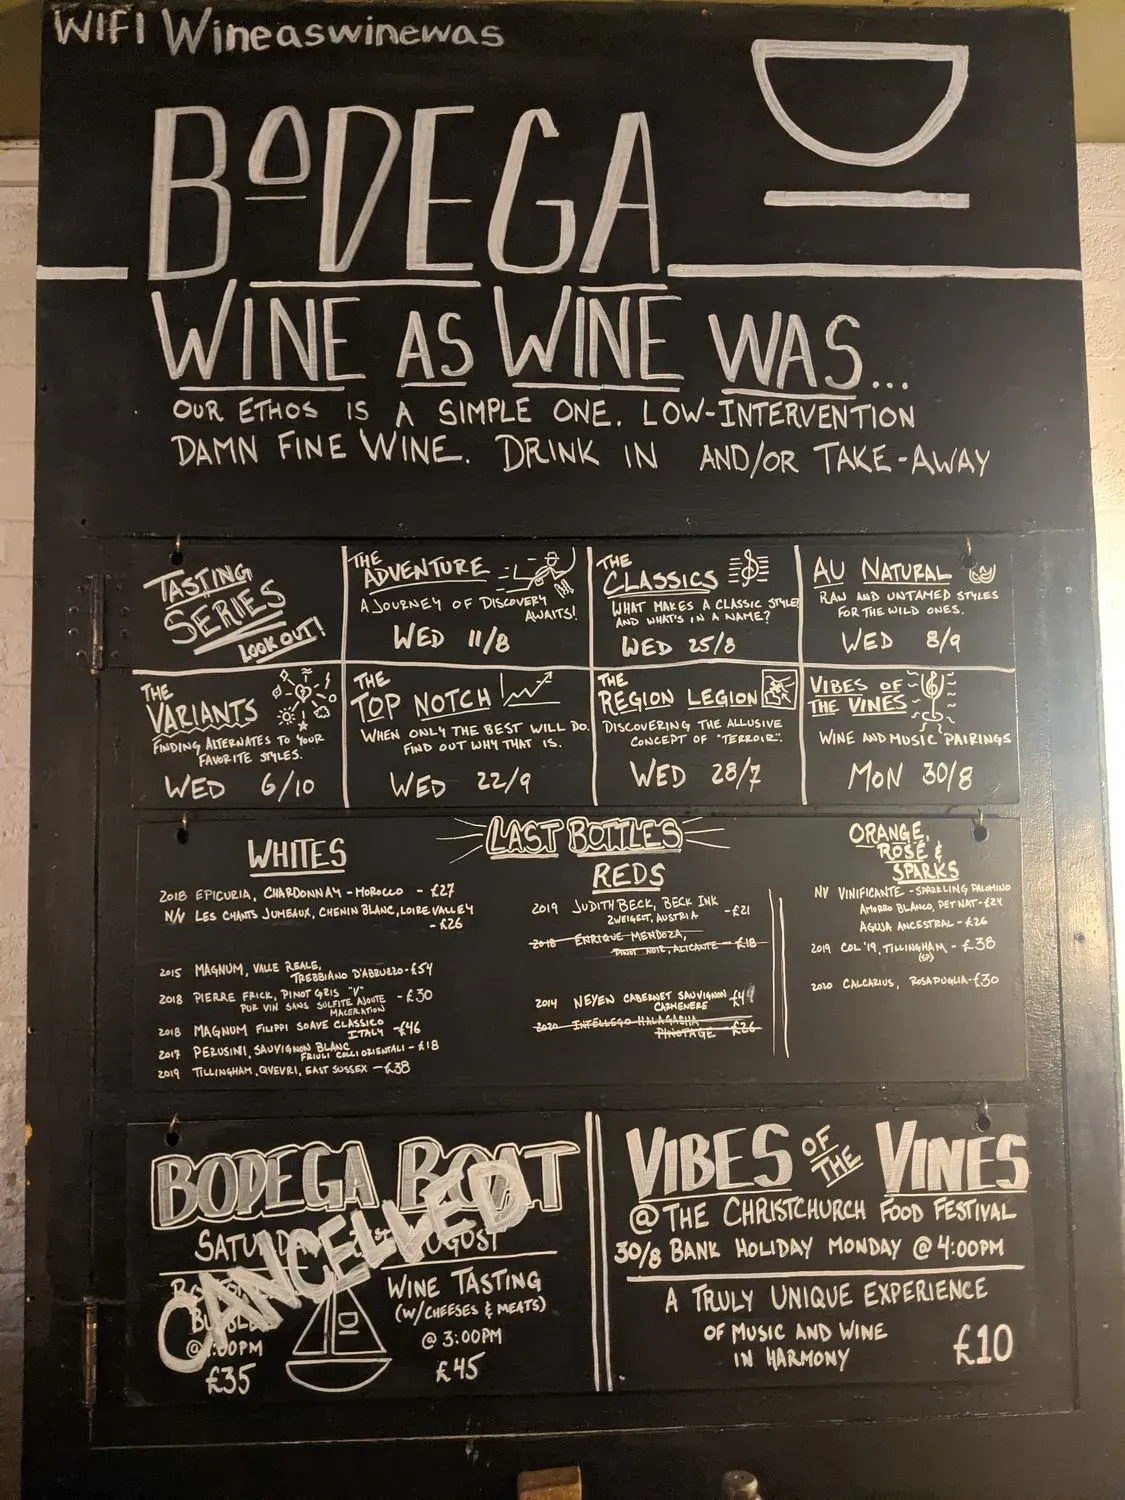 WIFI Wineaswinewas
BODEGA
WINE AS WINE WAS...
OUR ETHOS IS A SIMPLE ONE. LOW-INTERVENTION
DAMN FINE WINE. DRINK IN AND/OR TAKE-AWAY
TASTING
SERIES
LOOK OUT!
THE
ADVENTURE
A JOURNEY OF DISCOVERY
AWAITS!
WED 11/8
THE
CLASSICS
WHAT MAKES A CLASSIC STYLE
AND WHAT'S IN A NAME?
WED 25/8
AU NATURAL
RAW AND UNTAMED STYLES
FOR THE WILD ONES.
WED 8/9
THE
VARIANTS
FINDING ALTERNATES TO YOUR
FAVORITE STYLES.
WED 6/10
THE
TOP NOTCH
WHEN ONLY THE BEST WILL DO.
FIND OUT WHY THAT IS.
WED 22/9
THE
REGION LEGION
DISCOVERING THE ALLUSIVE
CONCEPT OF "TERROIR".
WED 28/7
VIBES OF
THE VINES
WINE AND MUSIC PAIRINGS
MON 30/8
LAST BOTTLES
WHITES
2018 EPICURIA, CHARDONNAY - MOROCCO - £27
N/V LES CHANTS JUMEAUX, CHENIN BLANC, LOIRE VALLEY
- £26
2015 MAGNUM, VALLE REALE,
TREBBIANO D'ABRUZZO - £54
2018 PIERRE FRICK, PINOT GRIS "V"
PUR VIN SANS SULFITE AJOUTE - £30
MACERATION
2018 MAGNUM FILIPPI SOAVE CLASSICO
ITALY - £46
2017 PERUSINI, SAUVIGNON BLANC
FRIULI COLLI ORIENTALI - £18
2019 TILLINGHAM, QVEVRI, EAST SUSSEX - £38
REDS
2019 JUDITH BECK, BECK INK
ZWEIGELT, AUSTRIA - £21
2018 ENRIQUE MENDOZA,
PINOT NOIR, ALICANTE - £18
2014 NEYEN CABERNET SAUVIGNON
CARMENERE
2020 INTELLEGO HALAGASHA
PINOTAGE £26
ORANGE,
ROSE &
SPARKS
NV VINIFICANTE - SPARKLING PALOMINO
AMORRO BLANCO, PET NAT - £24
AGUJA ANCESTRAL - £26
2019 COL '19, TILLINGHAM - £38
2020 CALCARIUS, ROSA PUGLIA - £30
BODEGA BOAT
CANCELLED
WINE TASTING
(W/CHEESES & MEATS)
@ 3:00PM
£45
£35
VIBES OF THE VINES
@ THE CHRISTCHURCH FOOD FESTIVAL
30/8 BANK HOLIDAY MONDAY @ 4:00PM
A TRULY UNIQUE EXPERIENCE
OF MUSIC AND WINE
IN HARMONY
£10